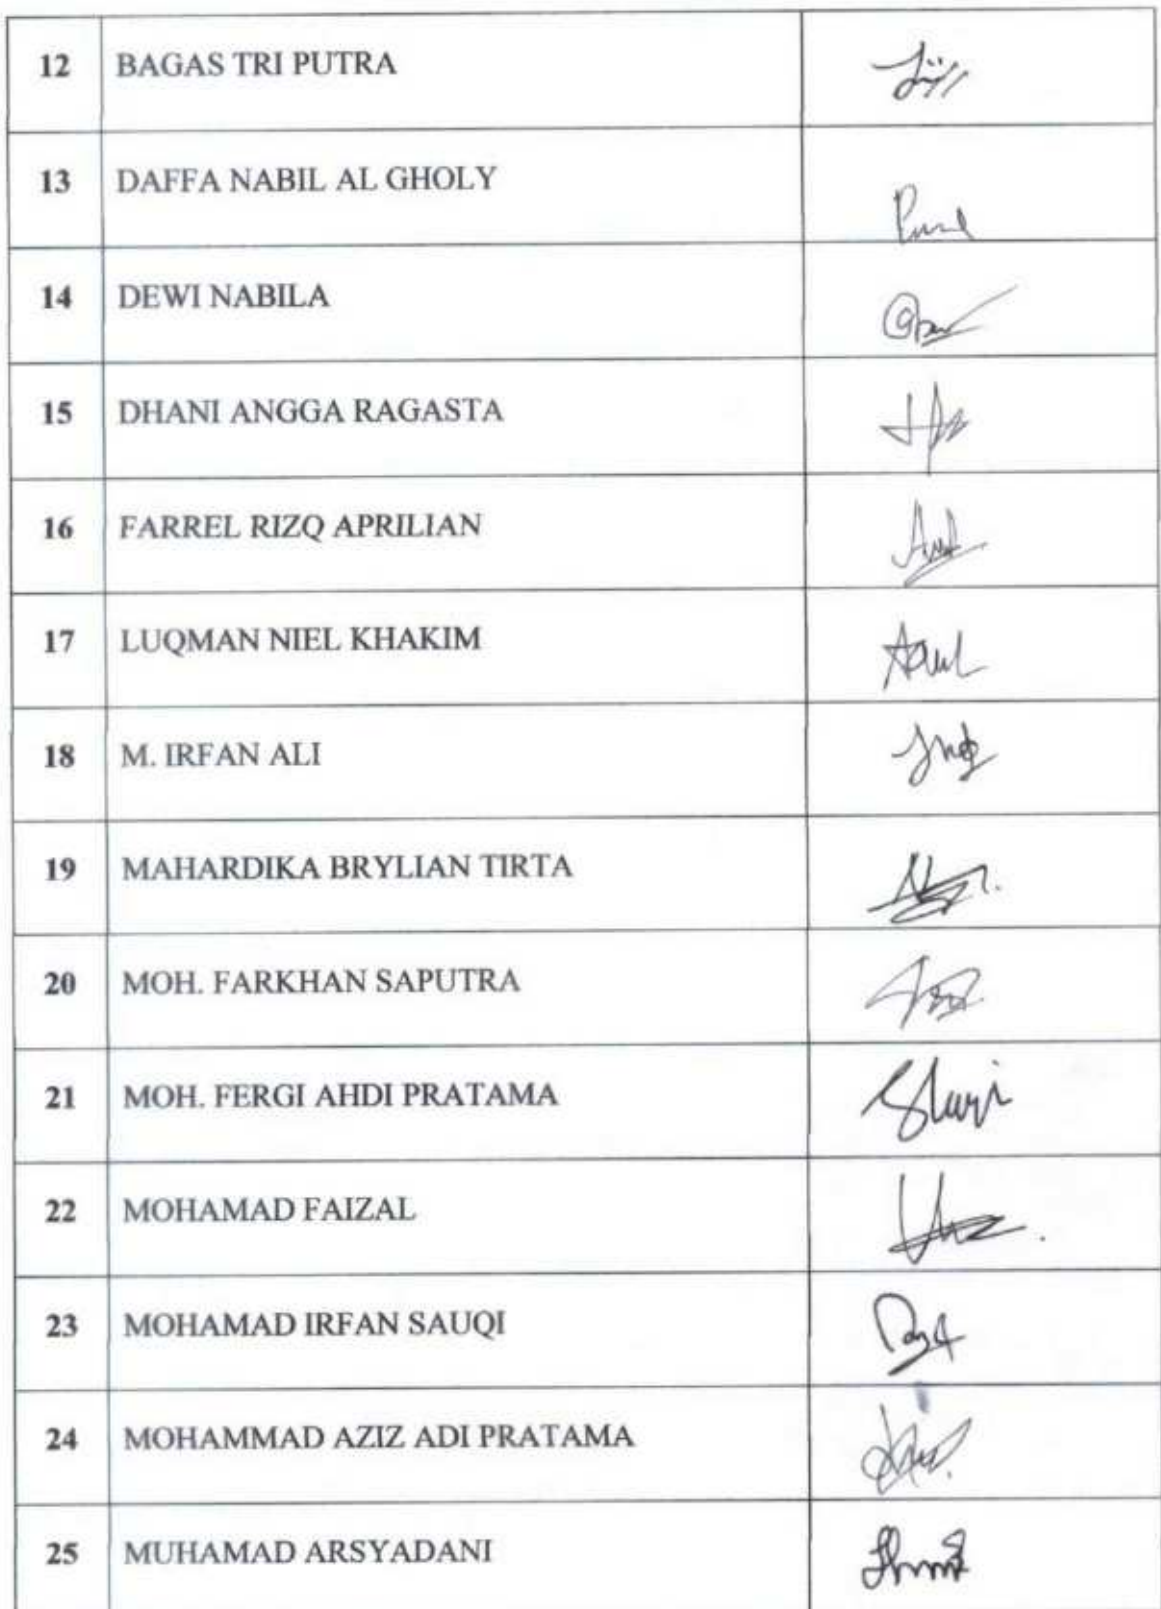 12 BAGAS TRI PUTRA
13 DAFFA NABIL AL GHOLY
14 DEWI NABILA
15 DHANI ANGGA RAGASTA
16 FARREL RIZQ APRILIAN
17 LUQMAN NIEL KHAKIM
18 M. IRFAN ALI
19 MAHARDIKA BRYLIAN TIRTA
20 MOH. FARKHAN SAPUTRA
21 MOH. FERGI AHDI PRATAMA
22 MOHAMAD FAIZAL
23 MOHAMAD IRFAN SAUQI
24 MOHAMMAD AZIZ ADI PRATAMA
25 MUHAMAD ARSYADANI